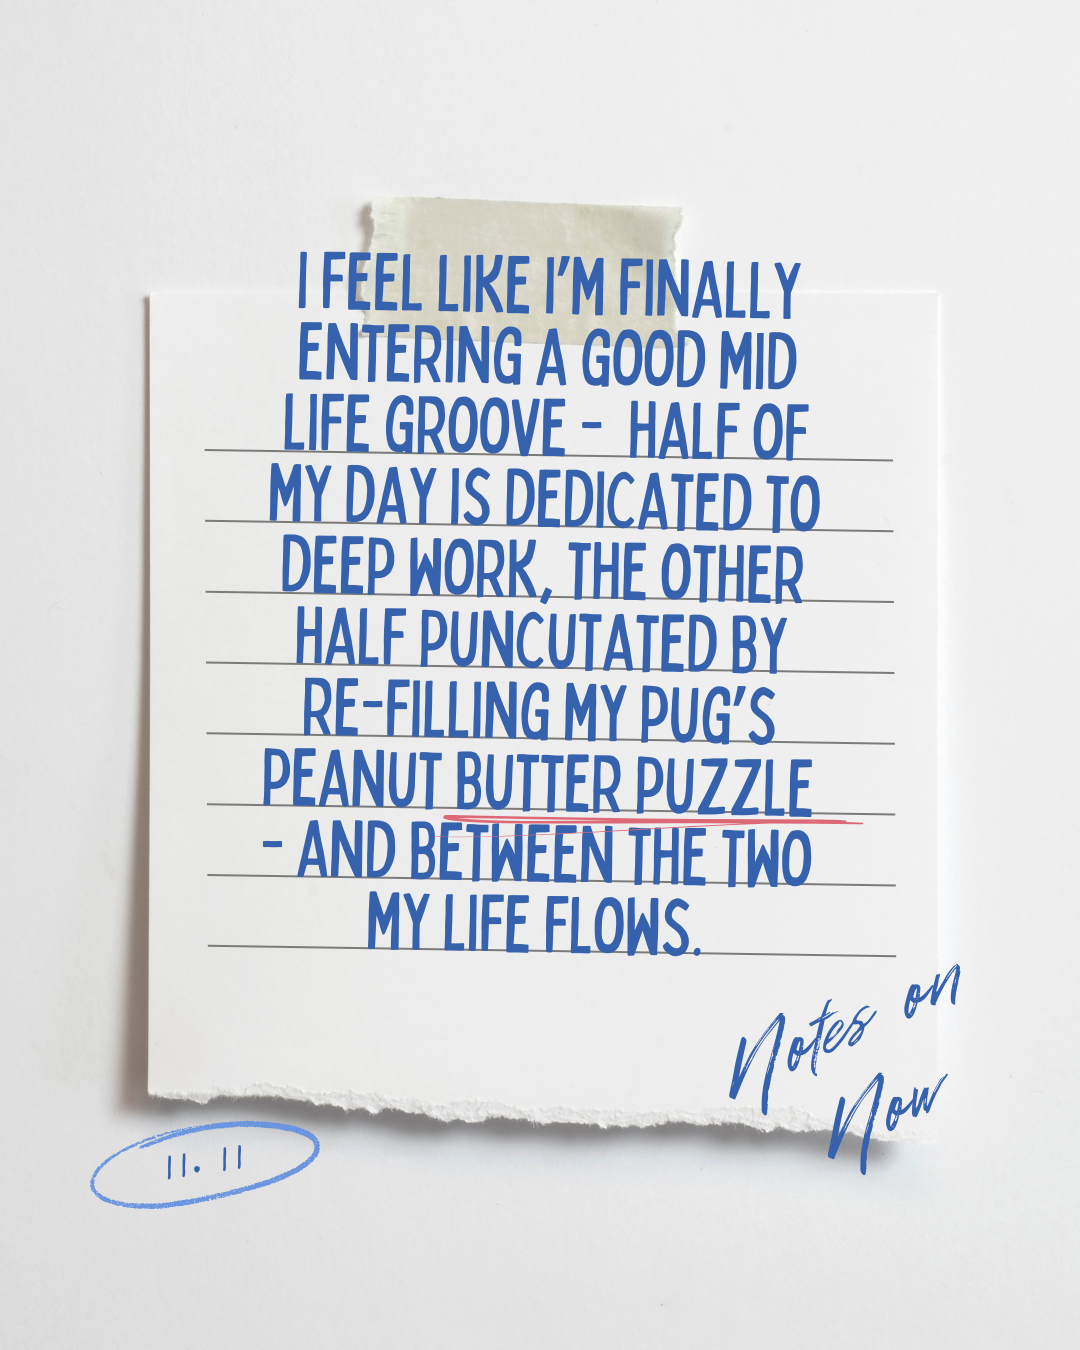 I FEEL LIKE I'M FINALLY
ENTERING A GOOD MID
LIFE GROOVE - HALF OF
MY DAY IS DEDICATED TO
DEEP WORK, THE OTHER
HALF PUNCUTATED BY
RE-FILLING MY PUG'S
PEANUT BUTTER PUZZLE
- AND BETWEEN THE TWO
MY LIFE FLOWS.
Notes on
Now
11. 11